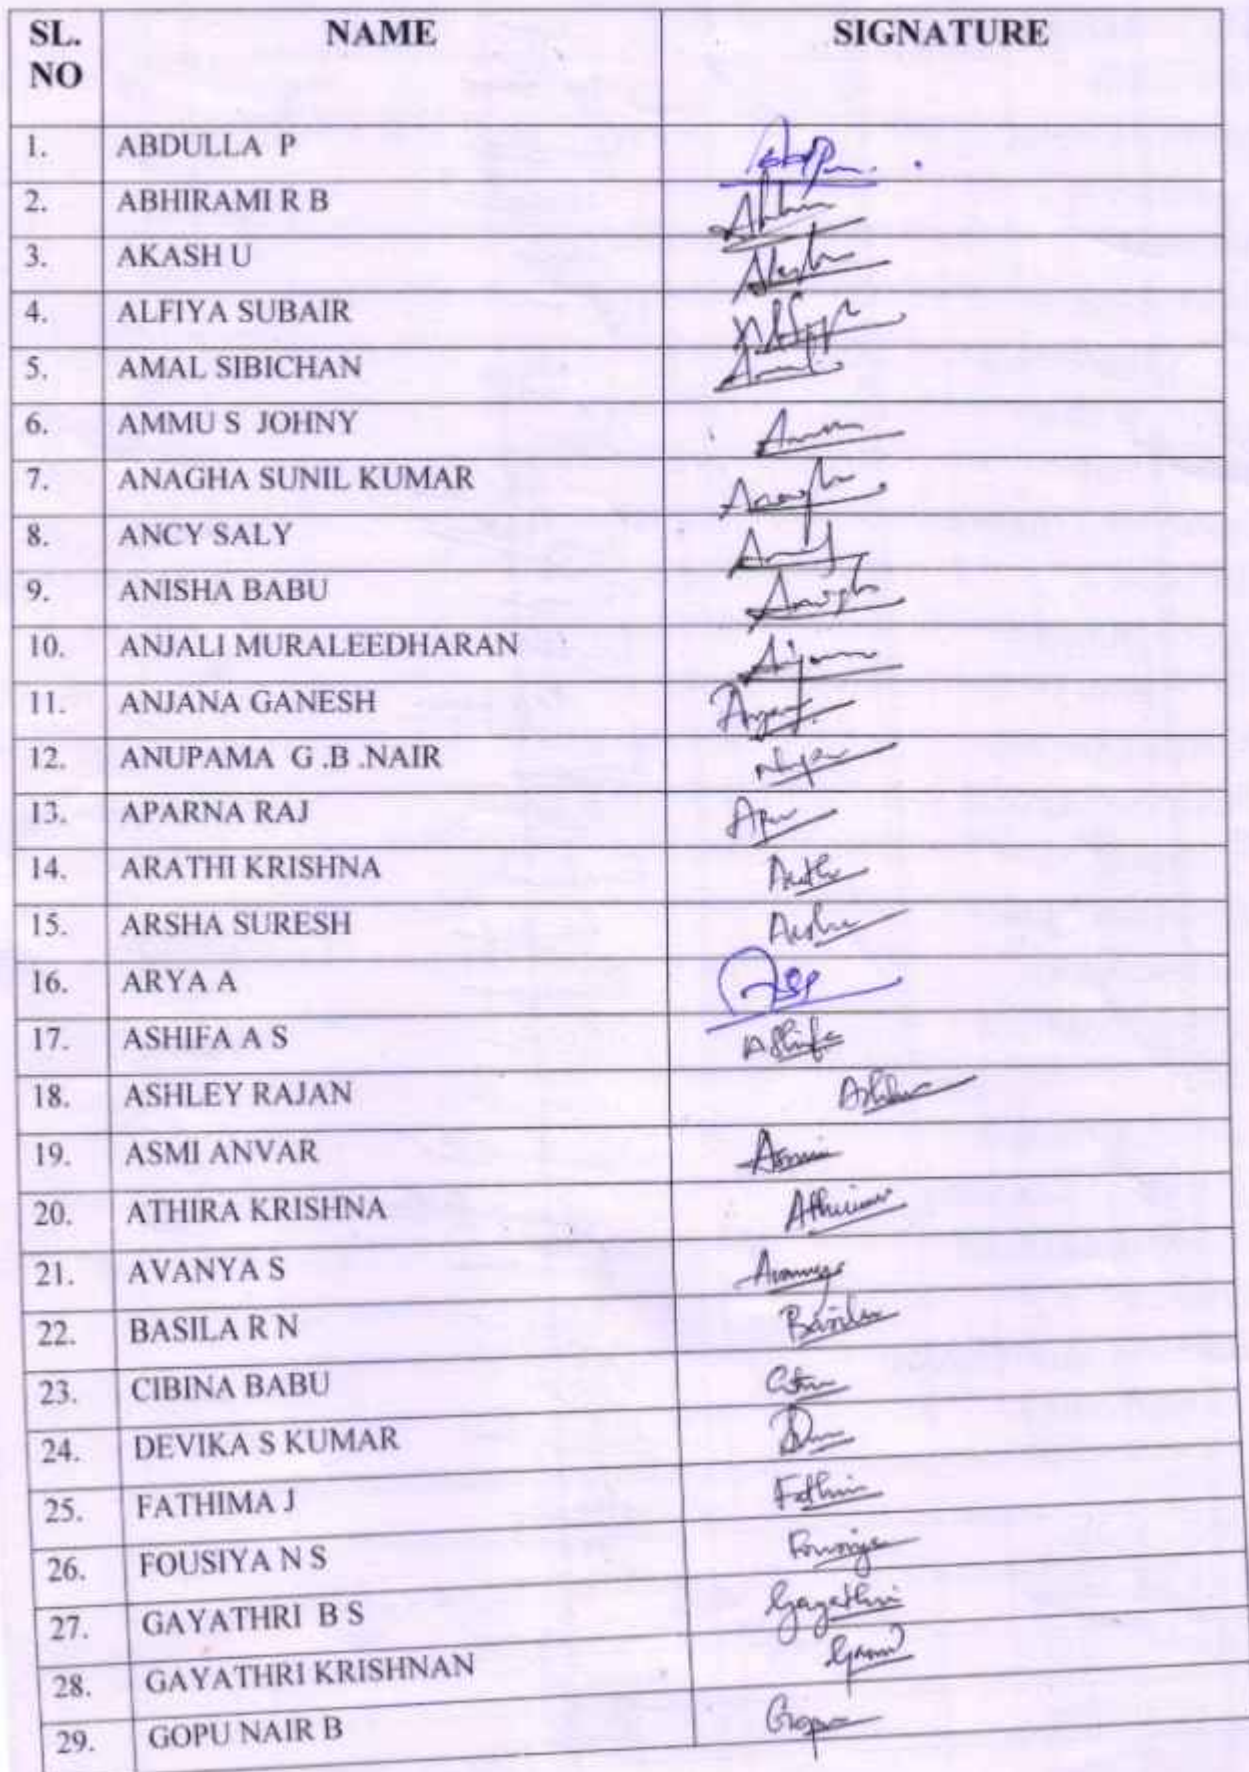 SL. NO NAME SIGNATURE
1. ABDULLA P
2. ABHIRAMI R B
3. AKASH U Akash
4. ALFIYA SUBAIR
5. AMAL SIBICHAN Amal
6. AMMU S JOHNY Ammu
7. ANAGHA SUNIL KUMAR Anagha
8. ANCY SALY
9. ANISHA BABU
10. ANJALI MURALEEDHARAN
11. ANJANA GANESH
12. ANUPAMA G .B .NAIR
13. APARNA RAJ
14. ARATHI KRISHNA
15. ARSHA SURESH
16. ARYA A
17. ASHIFA A S Ashifa
18. ASHLEY RAJAN
19. ASMI ANVAR Asmi
20. ATHIRA KRISHNA
21. AVANYA S Avanya
22. BASILA R N Basila
23. CIBINA BABU
24. DEVIKA S KUMAR
25. FATHIMA J
26. FOUSIYA N S Fousiya
27. GAYATHRI B S Gayathri
28. GAYATHRI KRISHNAN
29. GOPU NAIR B Gopu